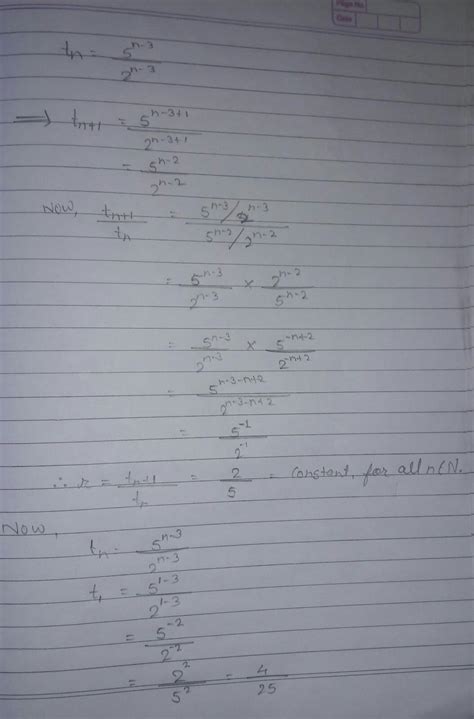 Page No.
Date
tn = 5^(n-3) / 2^(n-3)
⇒ t(n+1) = 5^(n-3+1) / 2^(n-3+1)
= 5^(n-2) / 2^(n-2)
Now, t(n+1) / tn = (5^(n-3) / 2^(n-3)) / (5^(n-2) / 2^(n-2))
= 5^(n-3) / 2^(n-3) × 2^(n-2) / 5^(n-2)
= 5^(n-3) / 2^(n-3) × 5^(-n+2) / 2^(-n+2)
= 5^(n-3-n+2) / 2^(n-3-n+2)
= 5^(-1) / 2^(-1)
∴ r = t(n+1) / tn = 2 / 5 = constant, for all n∈N.
Now,
tn = 5^(n-3) / 2^(n-3)
t1 = 5^(1-3) / 2^(1-3)
= 5^(-2) / 2^(-2)
= 2^2 / 5^2 = 4 / 25